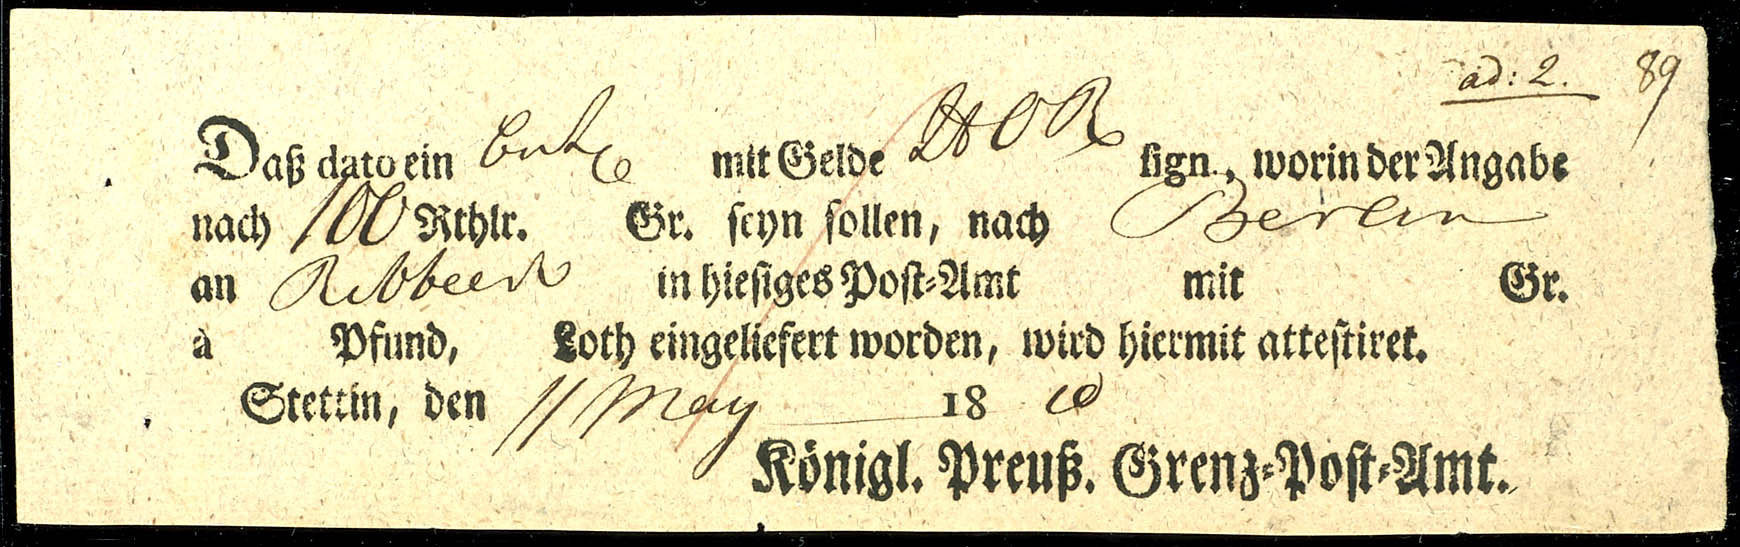 ad: 2. 89
Daß dato ein mit Gelde sign., worin der Angabe
nach 100 Rthlr. Gr. seyn sollen, nach Berlin
an Ribbeck in hiesiges Post-Amt mit Gr.
à Pfund, Loth eingeliefert worden, wird hiermit attestiret.
Stettin, den 11 May 18 10
Königl. Preuß. Grenz-Post-Amt.